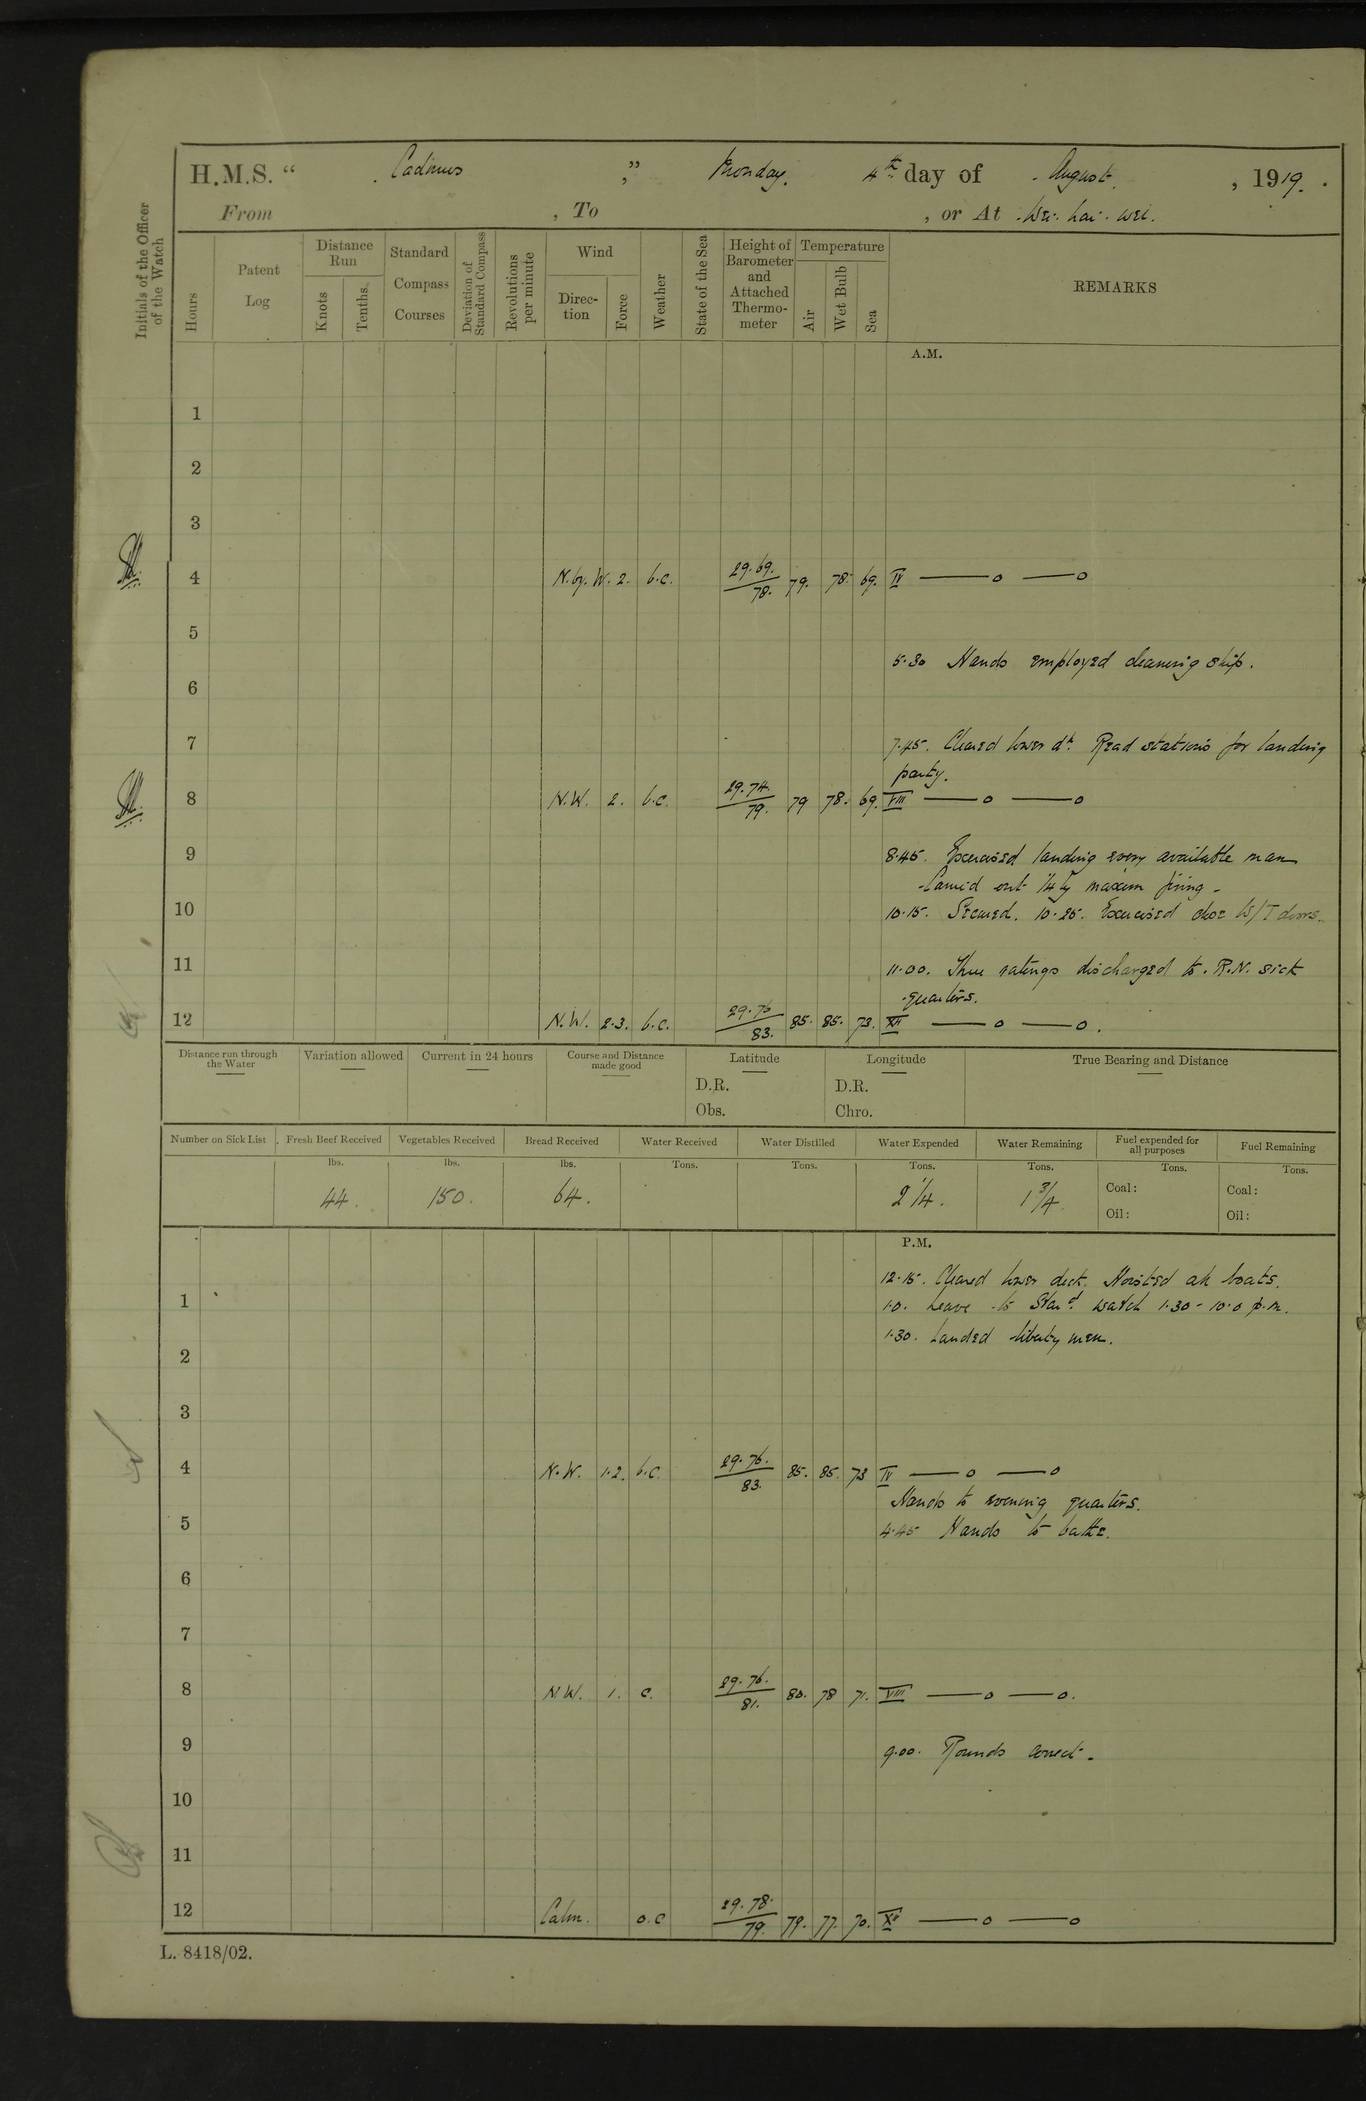 H.M.S. “ Cadmus ,” Monday. 4th day of August. , 1919.
From , To , or At Wei. hai. wei.
Initials of the Officer of the Watch
Hours
Patent Log
Distance Run
Knots
Tenths.
Standard Compass Courses
Deviation of Standard Compass
Revolutions per minute
Wind
Direction
Force
Weather
State of the Sea
Height of Barometer and Attached Thermometer
Temperature
Air
Wet Bulb
Sea
REMARKS
A.M.
1
2
3
4 N. by. W. 2. b.c. 29.69. 78. 79. 78. 69. IV —— o —— o
5
5.30 Hands employed cleaning ship.
6
7
7.45. Cleared lower dk. Read stations for landing
party.
8 N.W. 2. b.c. 29.74. 79. 79 78. 69. VIII —— o —— o
9
8.45. Exercised landing every available man
Carried out maxim firing -
10
10.15. Secured. 10.25. Exercised close W/T doors.
11
11.00. Three ratings discharged to R.N. sick
quarters.
12 N.W. 2.3. b.c. 29.76 83. 85. 85. 73. XII —— o —— o.
Distance run through the Water
Variation allowed
Current in 24 hours
Course and Distance made good
Latitude
D.R.
Obs.
Longitude
D.R.
Chro.
True Bearing and Distance
Number on Sick List
Fresh Beef Received
lbs.
44.
Vegetables Received
lbs.
150.
Bread Received
lbs.
64.
Water Received
Tons.
Water Distilled
Tons.
Water Expended
Tons.
2 1/4.
Water Remaining
Tons.
1 3/4
Fuel expended for all purposes
Tons.
Coal:
Oil:
Fuel Remaining
Tons.
Coal:
Oil:
P.M.
12.15. Cleared lower deck. Hoisted all boats.
1
1.0. Leave to Starď. watch 1.30 - 10.0 p.m.
1.30. Landed liberty men.
2
3
4 N.W. 1.2. b.c. 29.76. 83. 85. 85. 73 IV —— o —— o
Hands to evening quarters.
5
4.45 Hands to bathe.
6
7
8 N.W. 1. c. 29.76. 81. 80. 78 71. VIII —— o —— o.
9
9.00. Rounds correct.
10
11
12 Calm. o.c 29.78. 79. 79. 77. 70. XII —— o —— o
L. 8418/02.